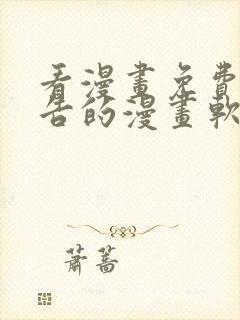 看漫畫免費
告的漫畫軟
蕭蒿